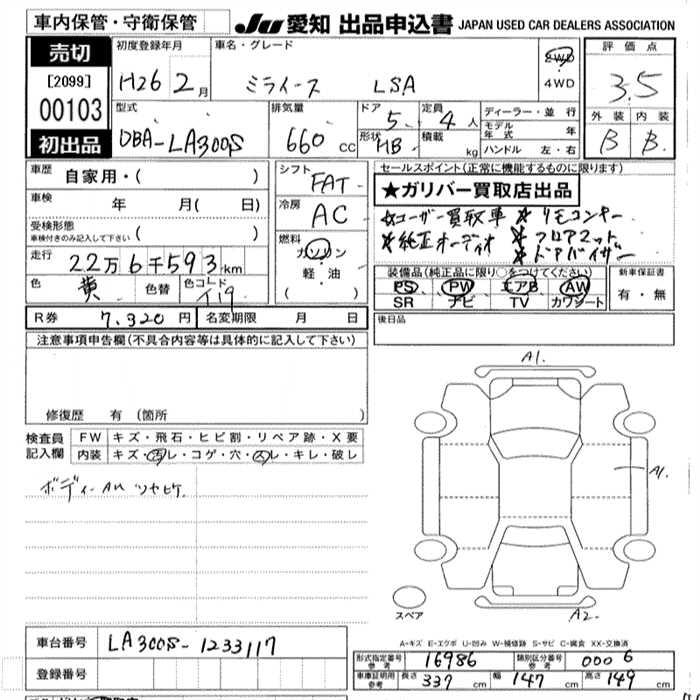 車内保管・守衛保管 JU 愛知 出品申込書 JAPAN USED CAR DEALERS ASSOCIATION
売切
[2099]
00103
初出品
初度登録年月
H26 2月
車名・グレード
ミライース LSA
2WD
4WD
評価点
3.5
外装 内装
B B
型式
DBA-LA300S
排気量
660 cc
ドア
5
形状
HB
定員
4人
積載
kg
ディーラー・並行
モデル年式 年
ハンドル 左・右
車歴
自家用・( )
車検
年 月( 日)
受検形態
車検付きのみ記入して下さい ( )
走行
22万6千593km
色
黄
色替
色コード
シフト
FAT
冷房
AC
燃料
ガソリン
軽・油
( )
セールスポイント(正常に機能するものに限ります)
★ガリバー買取店出品
★ユーザー買取車 ★リモコンキー
★純正オーディオ ★フロアマット
★ドアバイザー
装備品(純正品に限り○をつけてください)
PS PW エアB AW
SR ナビ TV カワシート
新車保証書
有・無
R券 7,320円 名変期限 月 日
後日品
注意事項申告欄(不具合内容等は具体的に記入して下さい)
修復歴 有 (箇所 )
検査員記入欄
FW キズ・飛石・ヒビ割・リペア跡・X要
内装 キズ・汚レ・コゲ・穴・スレ・キレ・破レ
ボディーAU ツヤヒケ
A1.
A1.
A2.
スペア
A-キズ E-エクボ U-凹み W-補修跡 S-サビ C-腐食 XX-交換済
車台番号 LA300S-1233117
登録番号
形式指定番号 参考 16986 類別区分番号 参考 0006
車庫証明用 参考 長さ 339 cm 幅 147 cm 高さ 149 cm